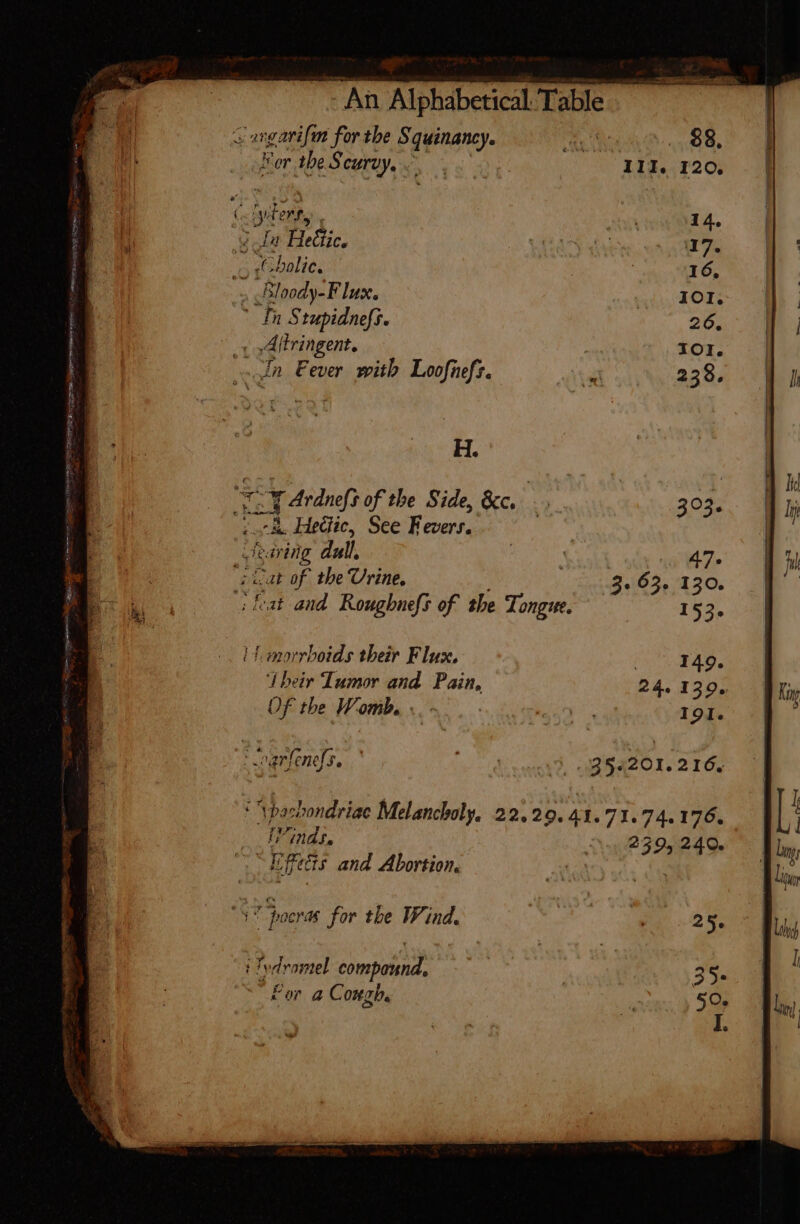 An Alphabetical Table
Gargarifm for the Squinancy. 88,
For the Scurvy. III. 120.
Glyfters, 14.
In Hectic. 17.
Cholic. 16,
Bloody-Flux. 101.
In Stupidnefs. 26.
Aftringent. 101.
In Fever with Loofnefs. 238.
H.
Ardnefs of the Side, &c. 303.
Hectic, See Fevers.
Hearing dull. 47.
Heat of the Urine. 3. 63. 130.
Heat and Roughnefs of the Tongue. 153.
Hemorrhoids their Flux. 149.
Their Tumor and Pain, 24. 139.
Of the Womb. 191.
Hoarfenefs. 35. 201. 216.
Hypochondriac Melancholy. 22. 29. 41. 71. 74. 176.
Winds. 239, 240.
Effects and Abortion.
Hippocras for the Wind. 25.
Hydromel compound. 35.
For a Cough. 50.
I.